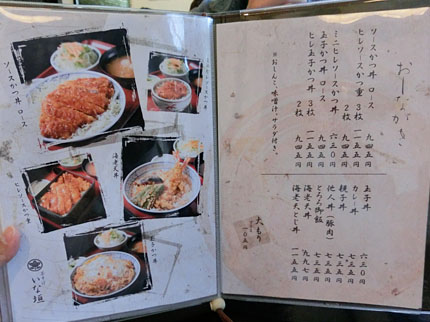 おしながき
ソースかつ丼 ロース 九四五円
ヒレソースかつ重 3枚 一一五五円
2枚 九四五円
ミニヒレソースかつ丼 六三〇円
玉子かつ丼 ロース 九四五円
ヒレ玉子かつ丼 3枚 一一五五円
2枚 九四五円
※おしんこ、味噌汁、サラダ付き。
玉子丼 六三〇円
カレー丼 七三五円
親子丼 七三五円
他人丼（豚肉） 七三五円
とろろ御飯 七三五円
海老天丼 九九七円
海老天とじ丼 一一五五円
大もり
一〇五円
ソースかつ丼 ロース
海老天丼
いな垣